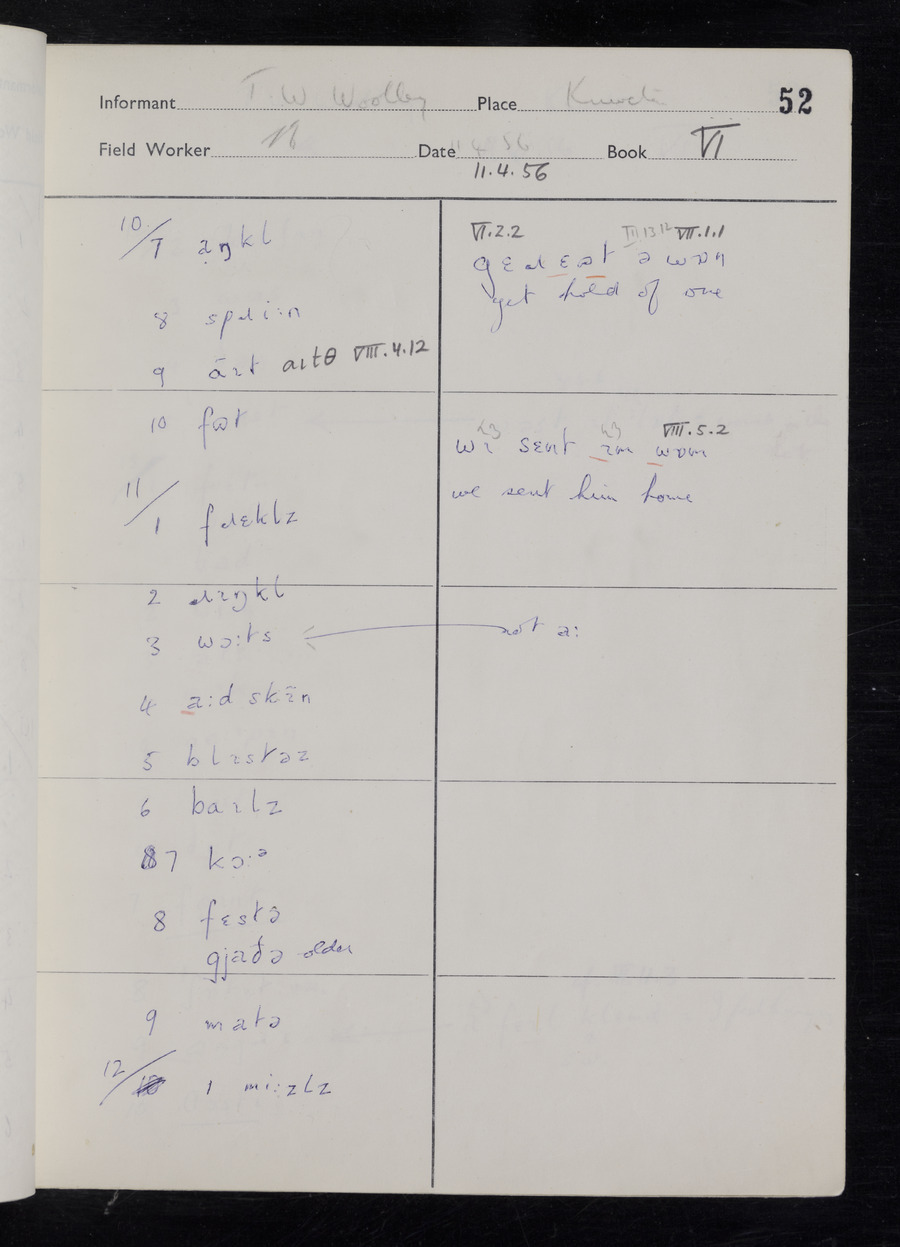 Informant T. W Woolley Place 52
Field Worker Date 11.4.56 Book VI
11.4.56
10/7 aŋkl
8 spɹɪ:n
9 ɑ̄ɪt aɪtθ VIII.4.12
10 fʊt
11/1 fɹɛklz
2 ɹɪŋkl
3 wɔ:ts
4 a:d skɪ̄n
5 blɪstəz
6 baɪlz
7 kɔ:ə
8 fɛstə
gjaðə older
9 matə
12/ 1 mi:zlz
VI.2.2 III 13 12 VII.1.1
gɛɹ ɛət ə wɒn
get hold of one
VIII.5.2
wɪ sɛnt ɪm wɒm
we sent him home
not a: